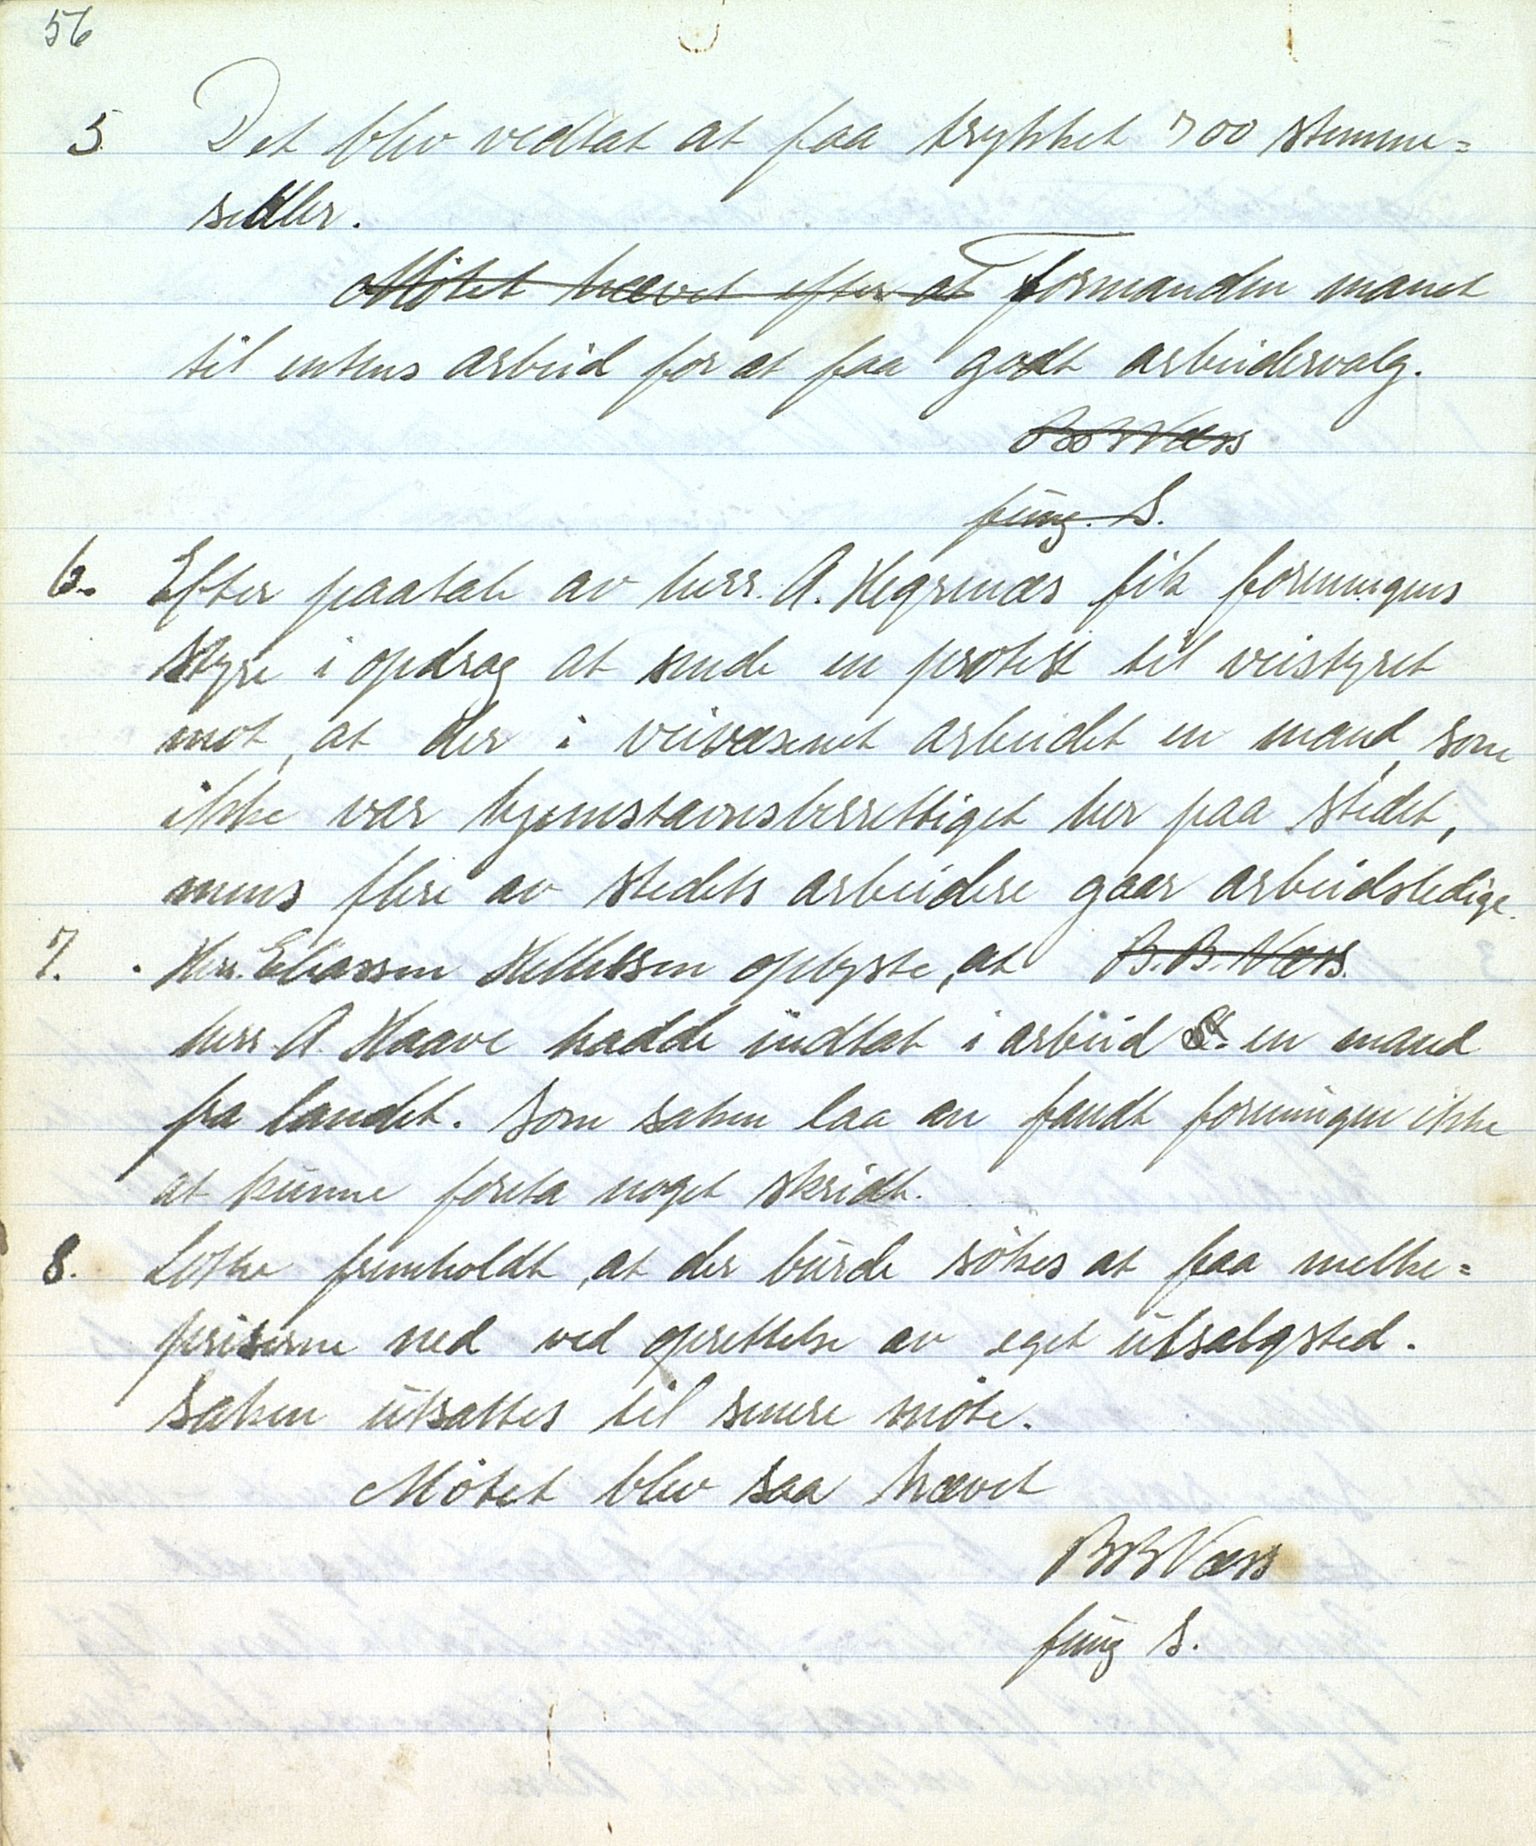 56
5 Det blev vedtat at faa trykket 700 stemme=
sedler.
Møtet hævet efter at Formanden manet
til intens arbeid for at faa godt arbeidervalg.
B B Næss
fung. S.
6. Efter paatale av herr. A. Hegrenæs fik foreningens
styre i opdrag at sende en protest til veistyret
mot, at der i veivæsenet arbeidet en mand, som
ikke var hjemstavnsberettiget her paa stedet,
mens flere av stedets arbeidere gaar arbeidsledige.
7. Herr. Eliassen Hellessen oplyste, at B. B. Næss.
herr A. Haave hadde indtat i arbeid en mand
fra landet. Som saken laa an fandt foreningen ikke
at kunne foreta noget skridt.
8. Løkke fremholdt, at der burde søkes at faa melke=
priserne ned ved oprettelse av eget utsalgsted.
Saken utsattes til senere møte.
Møtet blev saa hævet
B B Næss
fung S.